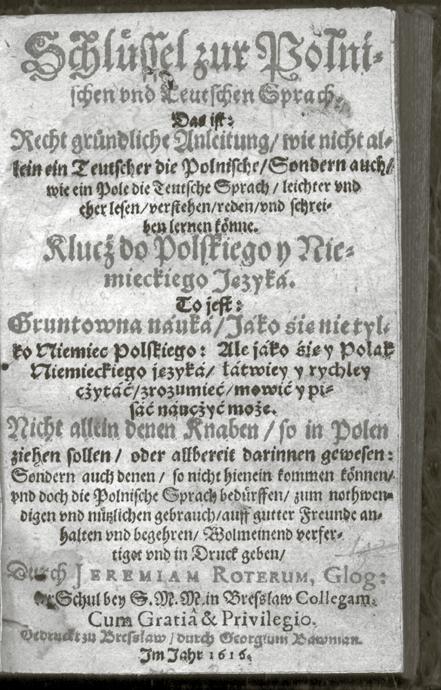 Schlüssel zur Polni-
schen vnd Teutschen Sprach,
Das ist:
Recht gründliche Anleitung/ wie nicht al-
lein ein Teutscher die Polnische/ Sondern auch/
wie ein Pole die Teutsche Sprach/ leichter vnd
eher lesen/ verstehen/ reden/ vnd schrei-
ben lernen könne.
Klucż do Polskiego y Nie-
mieckiego Języká.
To jest:
Gruntowna náuká/ Jáko śie nie tyl-
ko Niemiec Polskiego: Ale jáko śie y Polak
Niemieckiego języká/ łátwiey y rychley
cżytáć/ zrozumieć/ mowić y pi-
sáć náucżyć może.
Nicht allein denen Knaben/ so in Polen
ziehen sollen/ oder allbereit darinnen gewesen:
Sondern auch denen/ so nicht hienein kommen können/
vnd doch die Polnische Sprach bedürffen/ zum nothwen-
digen vnd nützlichen gebrauch/ auff gutter Freunde an-
halten vnd begehren/ Wolmeinend verfer-
tiget vnd in Druck geben/
Durch JEREMIAM ROTERUM, Glog:
der Schul bey S. M. M. in Bresslaw Collegam.
Cum Gratiâ & Privilegio.
Gedruckt zu Bresslaw/ durch Georgium Bawman.
Im Jahr 1616.